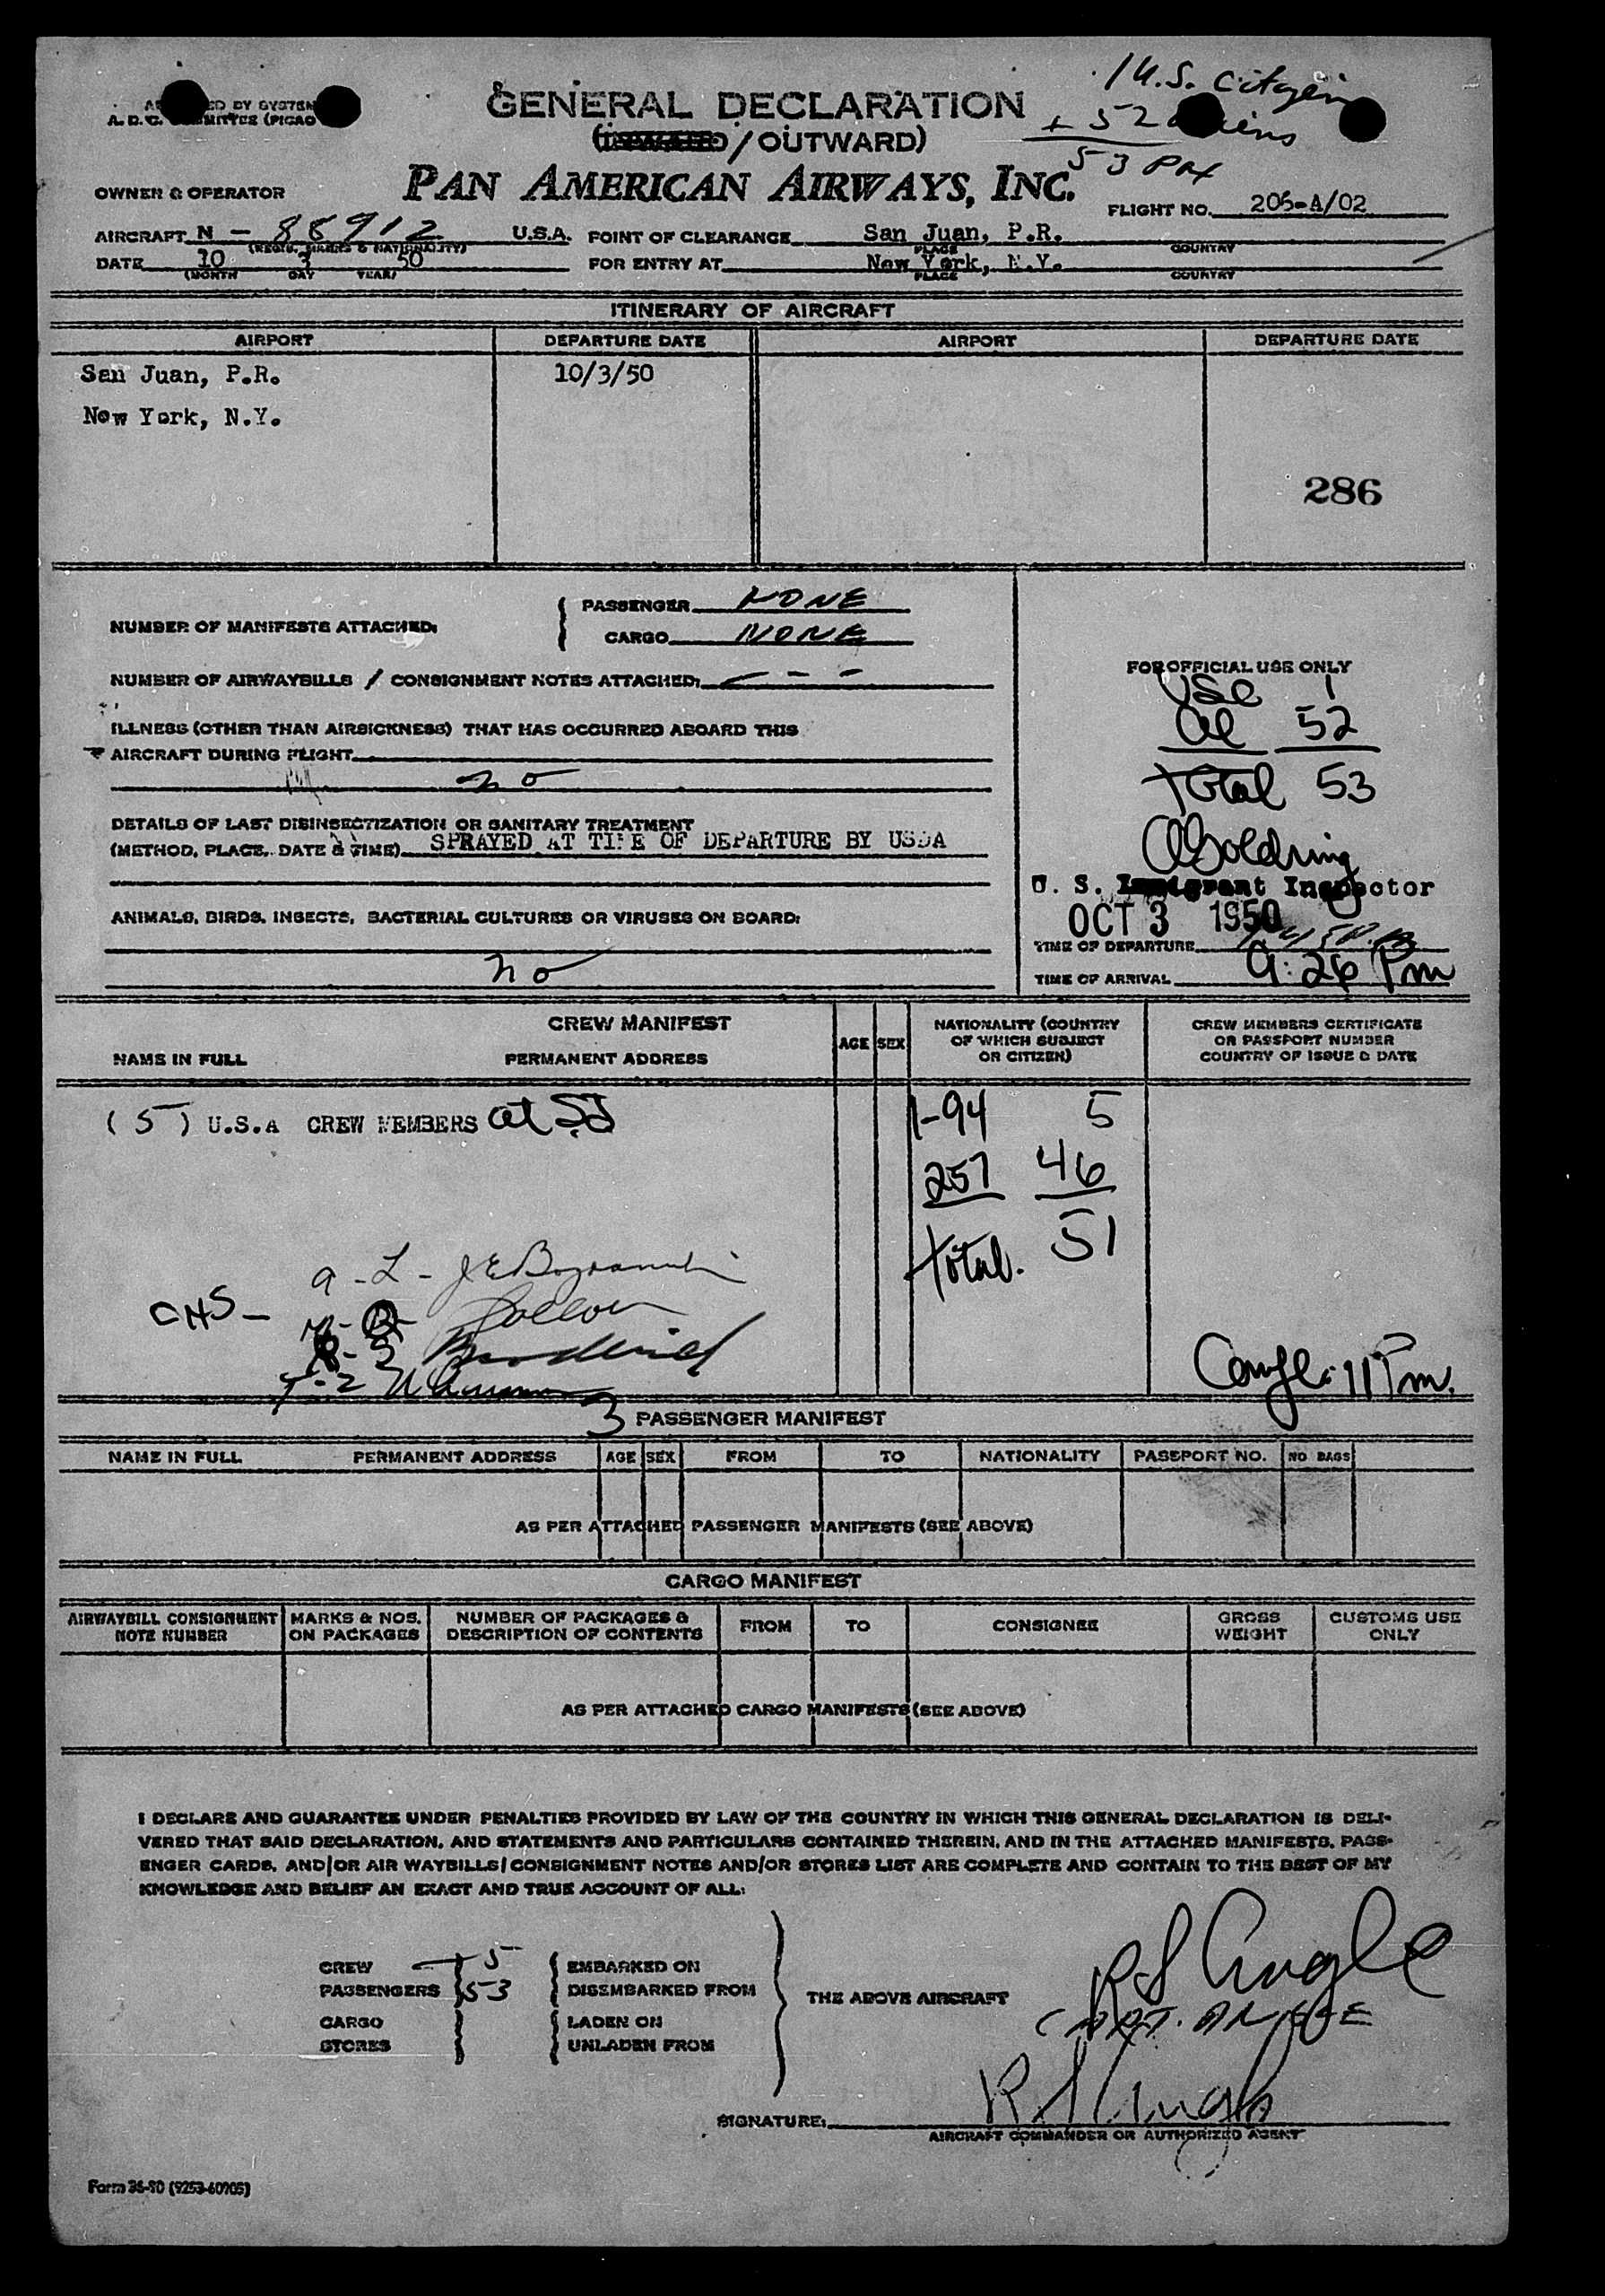 GENERAL DECLARATION
/ OUTWARD)
A. D. C. COMMITTEE (PICAO
1 U.S. Citizen
+ 52 aliens
53 PAX
PAN AMERICAN AIRWAYS, INC.
OWNER & OPERATOR
FLIGHT NO. 206-A/02
AIRCRAFT N - 88912 U.S.A. POINT OF CLEARANCE San Juan, P.R.
(REGIS. MARKS & NATIONALITY) PLACE COUNTRY
DATE 10 3 50 FOR ENTRY AT New York, N.Y.
(MONTH DAY YEAR) PLACE COUNTRY
ITINERARY OF AIRCRAFT
AIRPORT DEPARTURE DATE AIRPORT DEPARTURE DATE
San Juan, P.R. 10/3/50
New York, N.Y.
286
NUMBER OF MANIFESTS ATTACHED: PASSENGER NONE
CARGO NONE
NUMBER OF AIRWAYBILLS / CONSIGNMENT NOTES ATTACHED: - - -
ILLNESS (OTHER THAN AIRSICKNESS) THAT HAS OCCURRED ABOARD THIS
AIRCRAFT DURING FLIGHT
no
DETAILS OF LAST DISINSECTIZATION OR SANITARY TREATMENT
(METHOD, PLACE, DATE & TIME) SPRAYED AT TIME OF DEPARTURE BY USDA
ANIMALS, BIRDS, INSECTS, BACTERIAL CULTURES OR VIRUSES ON BOARD:
no
FOR OFFICIAL USE ONLY
USC 1
al 52
Total 53
Goldring
U. S. Immigrant Inspector
OCT 3 1950
TIME OF DEPARTURE
TIME OF ARRIVAL 9:26 Pm
CREW MANIFEST
NAME IN FULL PERMANENT ADDRESS AGE SEX NATIONALITY (COUNTRY
OF WHICH SUBJECT
OR CITIZEN) CREW MEMBERS CERTIFICATE
OR PASSPORT NUMBER
COUNTRY OF ISSUE & DATE
(5) U.S.A CREW MEMBERS at SJ
1-94 5
257 46
total. 51
CHS -
Compl: 11 Pm.
3
PASSENGER MANIFEST
NAME IN FULL PERMANENT ADDRESS AGE SEX FROM TO NATIONALITY PASSPORT NO. NO BAGS
AS PER ATTACHED PASSENGER MANIFESTS (SEE ABOVE)
CARGO MANIFEST
AIRWAYBILL CONSIGNMENT
NOTE NUMBER MARKS & NOS.
ON PACKAGES NUMBER OF PACKAGES &
DESCRIPTION OF CONTENTS FROM TO CONSIGNEE GROSS
WEIGHT CUSTOMS USE
ONLY
AS PER ATTACHED CARGO MANIFESTS (SEE ABOVE)
I DECLARE AND GUARANTEE UNDER PENALTIES PROVIDED BY LAW OF THE COUNTRY IN WHICH THIS GENERAL DECLARATION IS DELI-
VERED THAT SAID DECLARATION, AND STATEMENTS AND PARTICULARS CONTAINED THEREIN, AND IN THE ATTACHED MANIFESTS, PASS-
ENGER CARDS, AND/OR AIR WAYBILLS/CONSIGNMENT NOTES AND/OR STORES LIST ARE COMPLETE AND CONTAIN TO THE BEST OF MY
KNOWLEDGE AND BELIEF AN EXACT AND TRUE ACCOUNT OF ALL:
CREW 5 EMBARKED ON
PASSENGERS 53 DISEMBARKED FROM
THE ABOVE AIRCRAFT
CARGO LADEN ON
STORES UNLADEN FROM
R S Angle
CAPT. ANGLE
R S Angle
SIGNATURE:
AIRCRAFT COMMANDER OR AUTHORIZED AGENT
Form 36-90 (9253-60705)